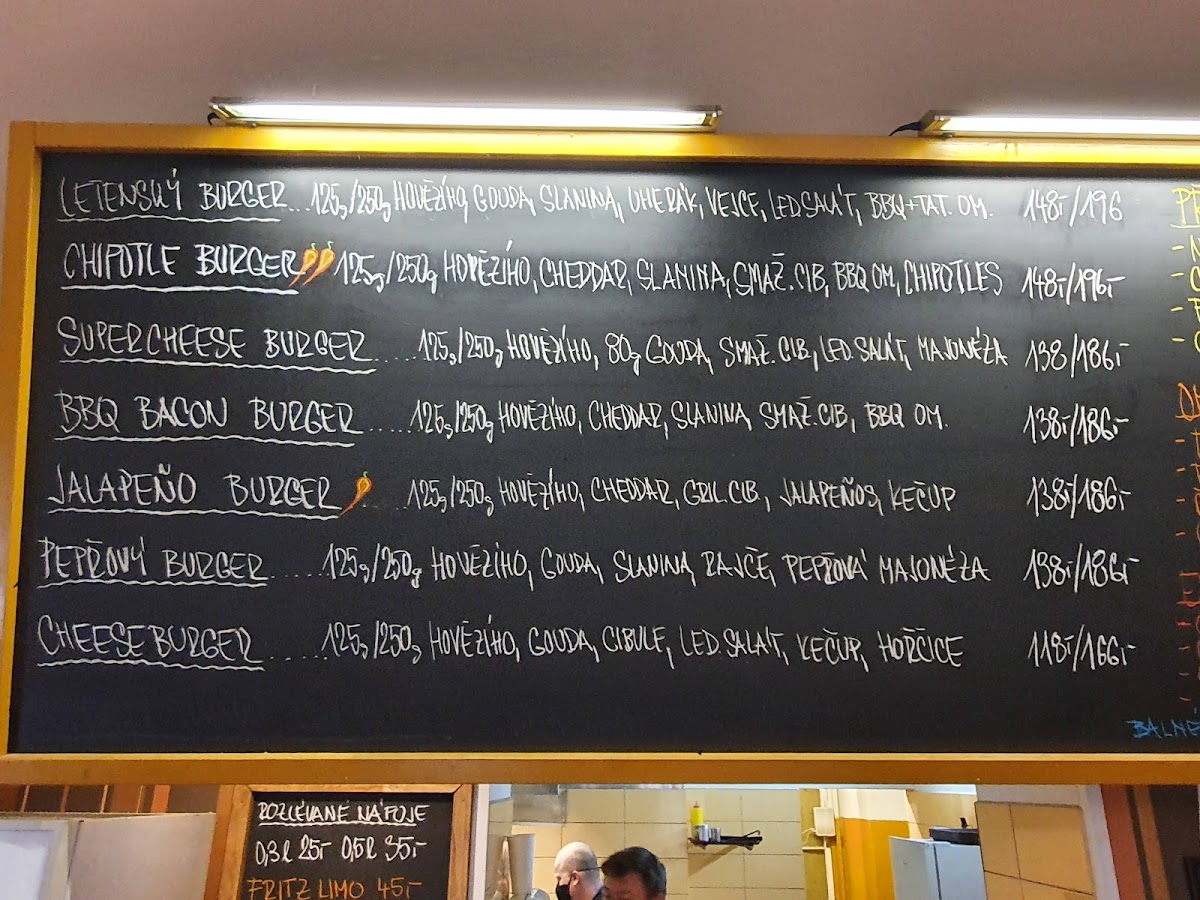 LETENSKÝ BURGER...125g/250g HOVĚZÍHO, GOUDA, SLANINA, UHERÁK, VEJCE, LED.SALÁT, BBQ+TAT. OM. 148,-/196
CHIPOTLE BURGER 125g/250g HOVĚZÍHO, CHEDDAR, SLANINA, SMAŽ. CIB, BBQ OM, CHIPOTLES 148,-/196,-
SUPERCHEESE BURGER.....125g/250g HOVĚZÍHO, 80g GOUDA, SMAŽ. CIB, LED. SALÁT, MAJONÉZA 138/186,-
BBQ BACON BURGER.....125g/250g HOVĚZÍHO, CHEDDAR, SLANINA, SMAŽ.CIB, BBQ OM. 138,-/186,-
JALAPEÑO BURGER.....125g/250g HOVĚZÍHO, CHEDDAR, GRIL.CIB, JALAPEÑOS, KEČUP 138,-/186,-
PEPŘOVÝ BURGER......125g/250g HOVĚZÍHO, GOUDA, SLANINA, RAJČE, PEPŘOVÁ MAJONÉZA 138,-/186,-
CHEESEBURGER......125g/250g HOVĚZÍHO, GOUDA, CIBULE, LED.SALÁT, KEČUP, HOŘČICE 118,-/166,-
ROZLÉVANÉ NÁPOJE
0,3l 25,- 0,5l 35,-
FRITZ LIMO 45,-